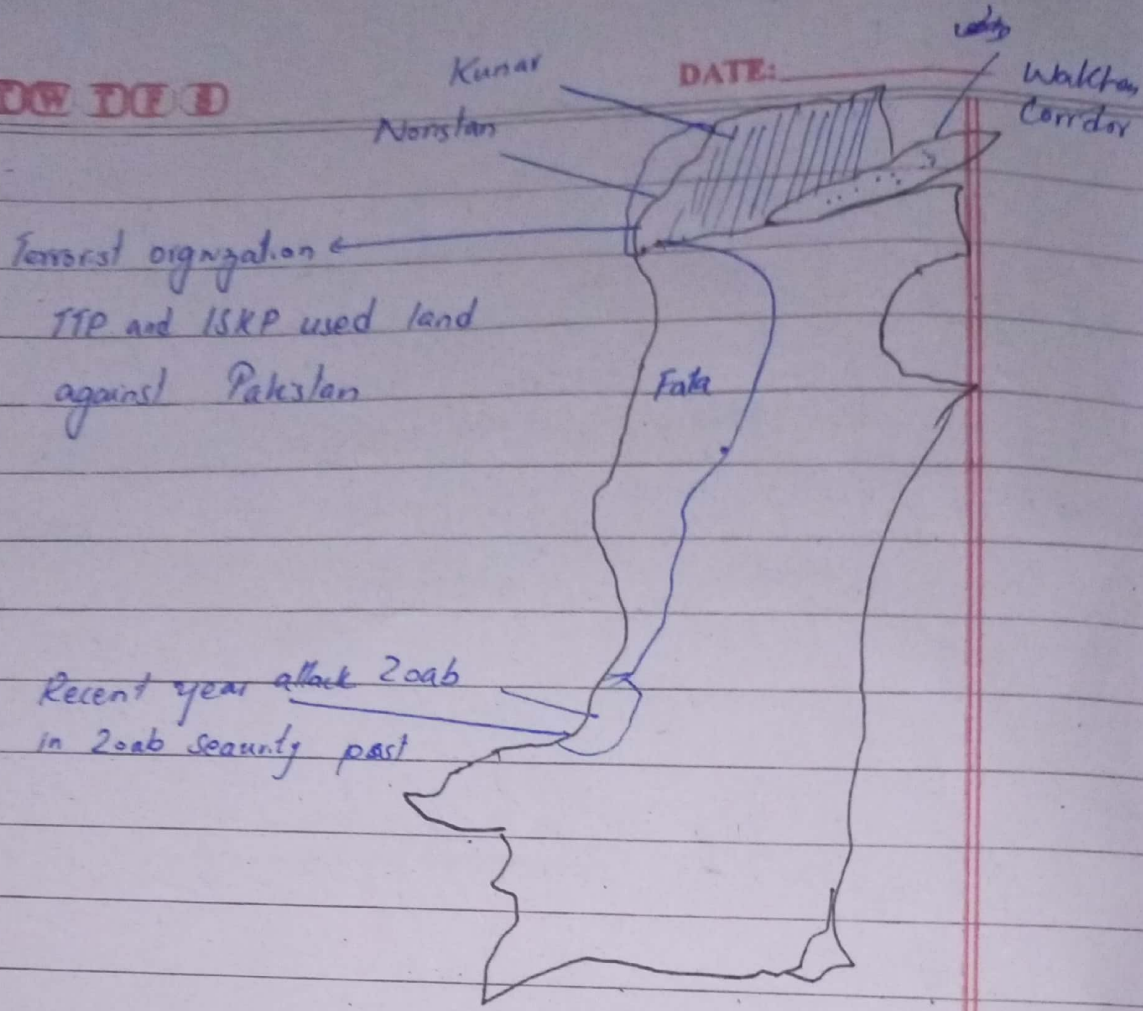 DATE:
Kunar
Noristan
Wakhan
Corridor
Terrorist orgnzation
TTP and ISKP used land
against Pakistan
Fata
Recent year attack Zoab
in Zoab security post